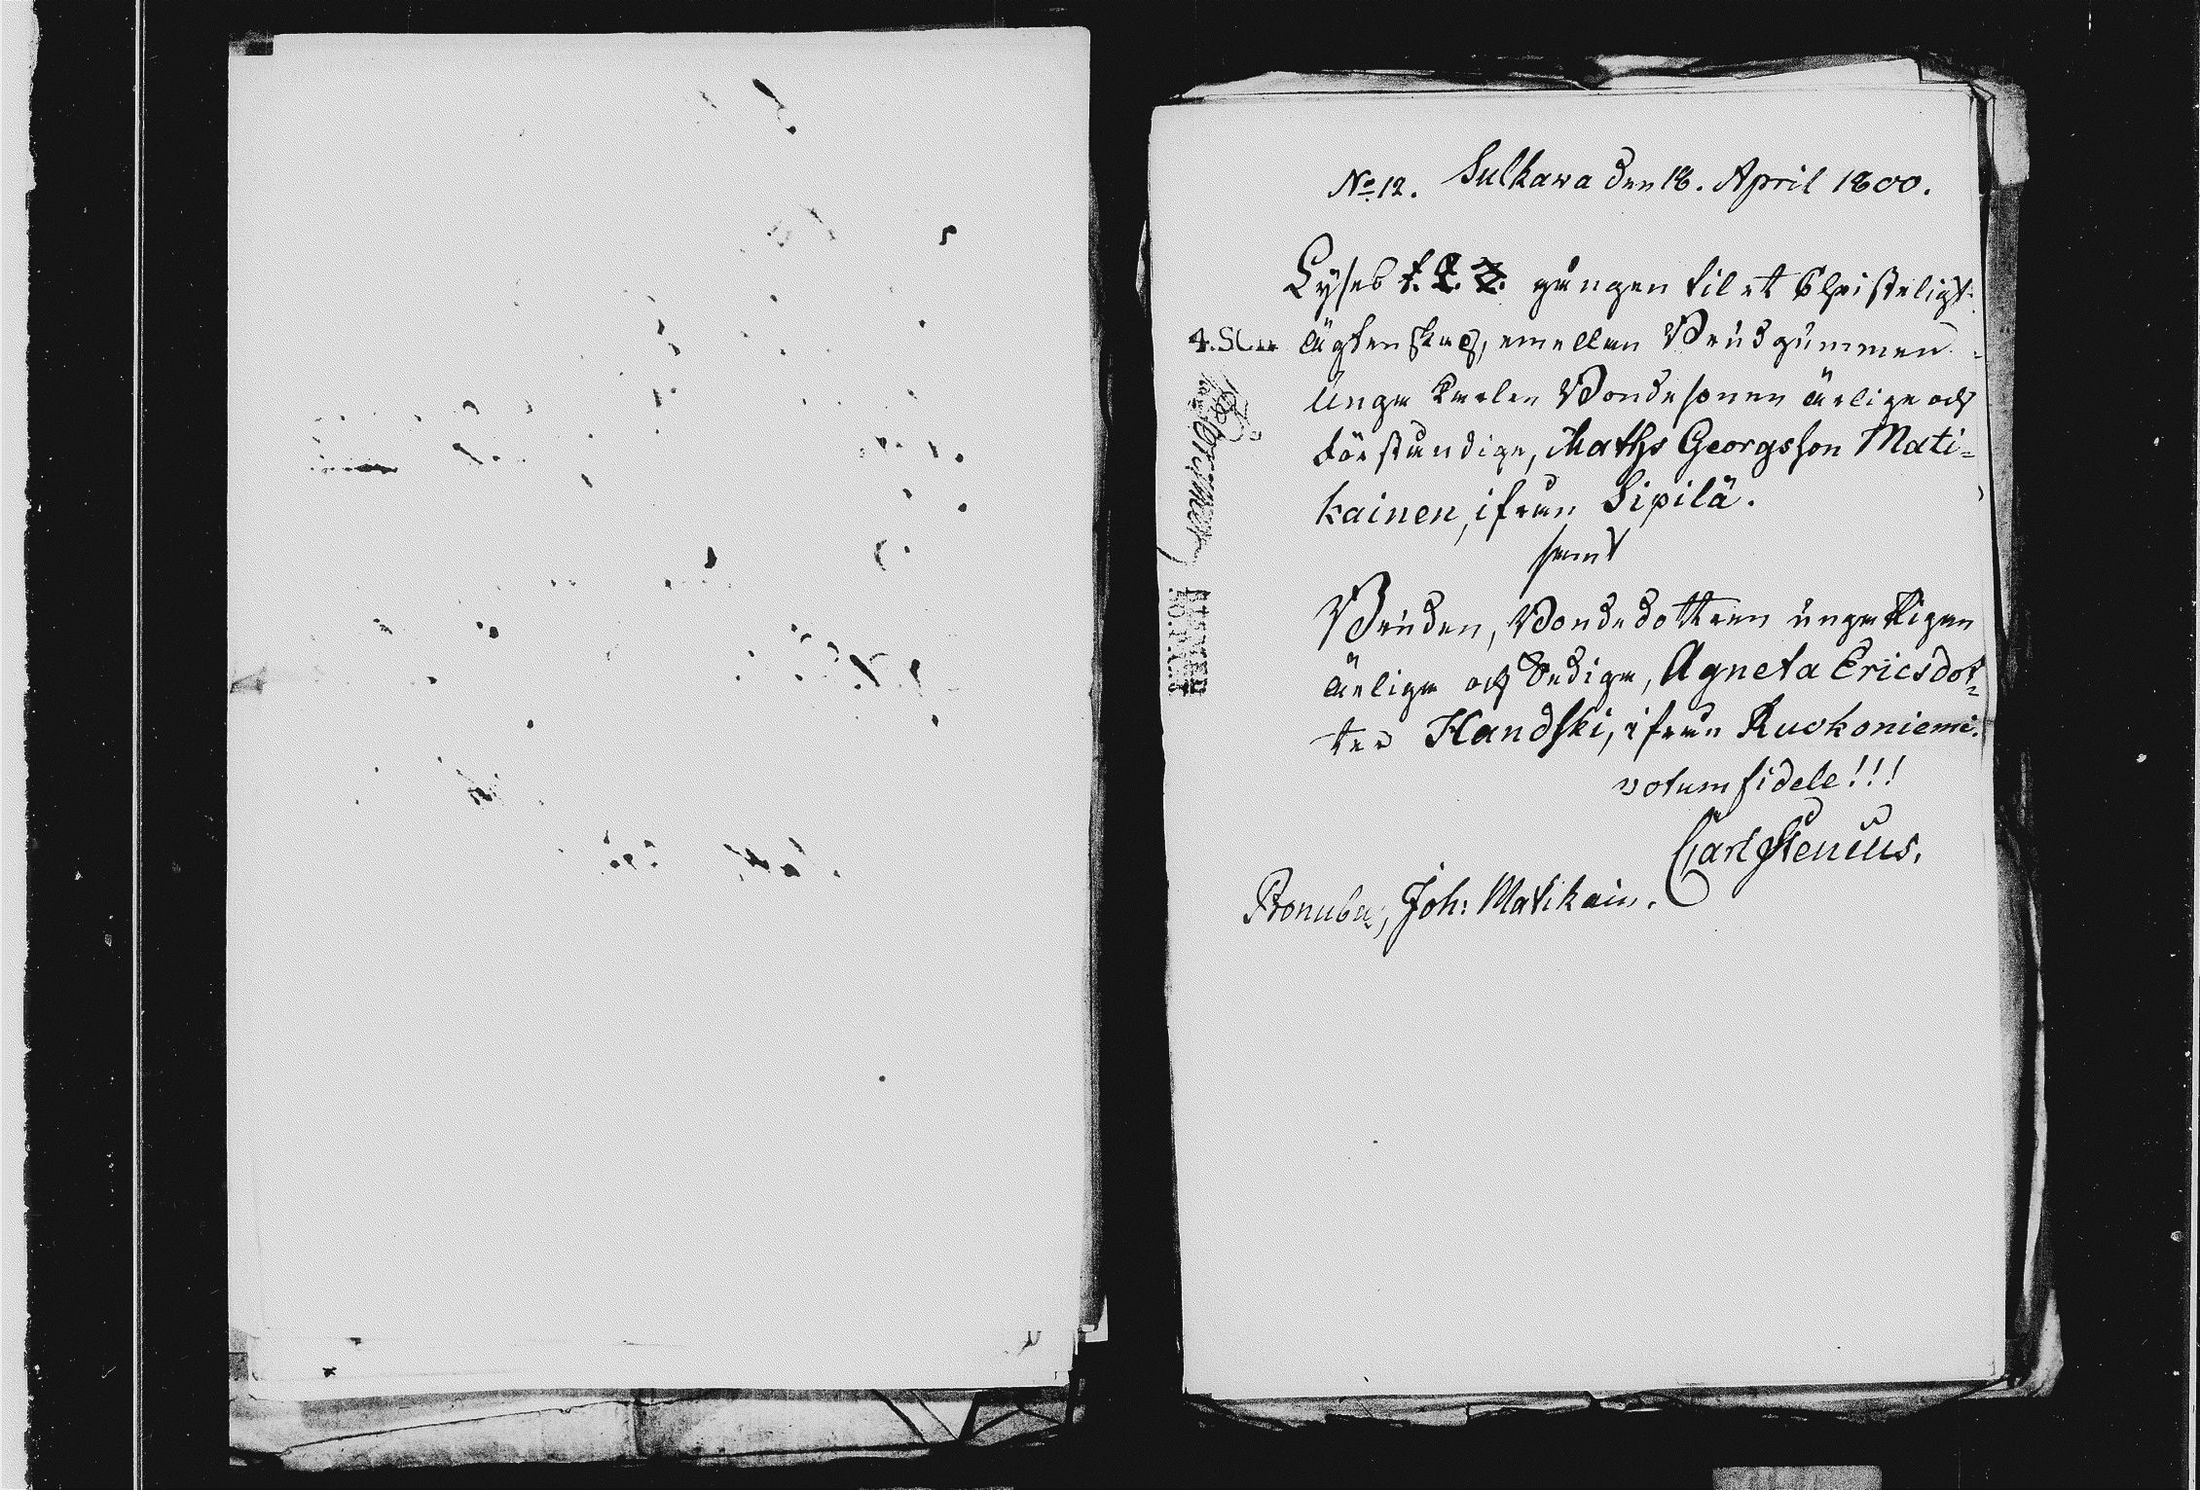 No 12. Sulkawa den 18. April 1800.
Lyses 1. 2. 3. gången til et Christeligt
ägtenskap, emellan Brudgummen
Unga Karlen Bondesonen ärlige och
förståndige, Maths Georgsson Mati=
kainen, ifrån Sipilä.
samt
Bruden, Bondedottren unga Pigan
ärliga och Sediga, Agneta Ericsdot=
ter Handski, ifrån Ruokoniemi.
votum fidele!!!
Carl Stenius.
Pronuba, Joh: Matikain.